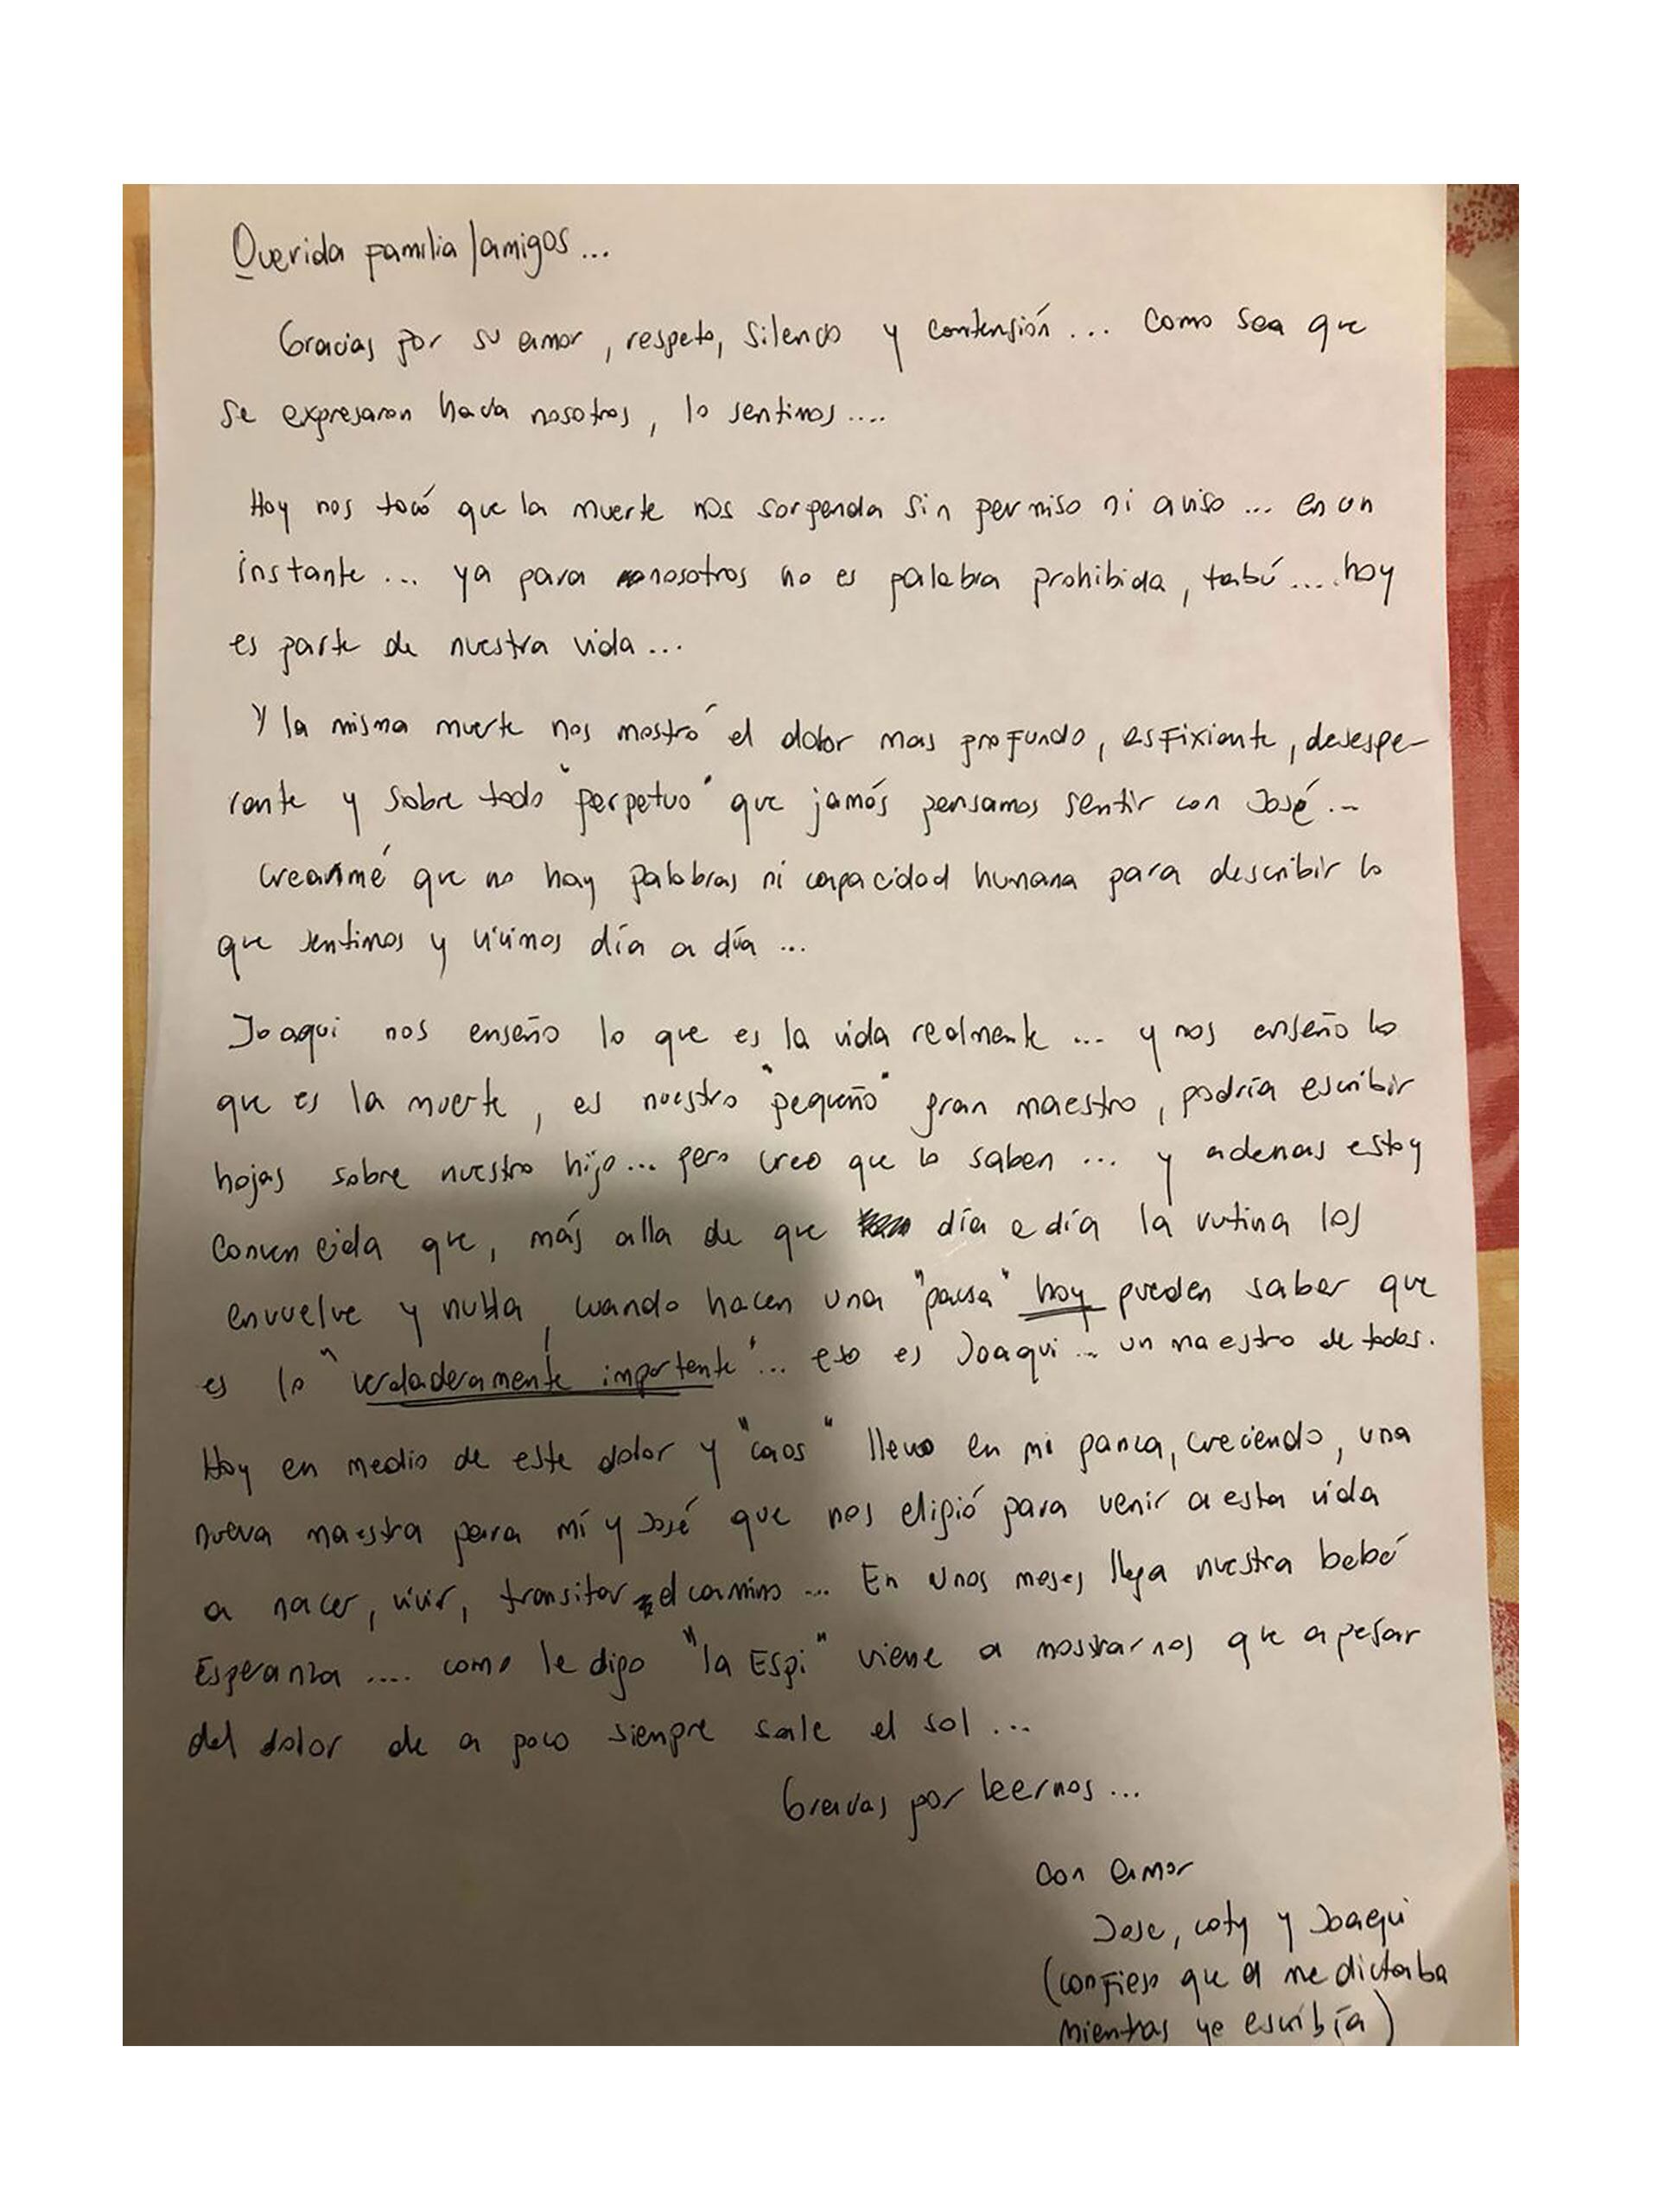 Querida familia/amigos...
Gracias por su amor, respeto, silencio y contensión... como sea que
se expresaron hacia nosotros, lo sentimos....
Hoy nos tocó que la muerte nos sorpenda sin permiso ni aviso... en un
instante... ya para nosotros no es palabra prohibida, tabú.... hoy
es parte de nuestra vida...
Y la misma muerte nos mostró el dolor mas profundo, asfixiante, desespe-
rante y sobre todo "perpetuo" que jamás pensamos sentir con José...
Creanmé que no hay palabras ni capacidad humana para describir lo
que sentimos y vivimos día a día...
Joaqui nos enseño lo que es la vida realmente... y nos enseño lo
que es la muerte, es nuestro "pequeño" gran maestro, podría escribir
hojas sobre nuestro hijo... pero creo que lo saben... y ademas estoy
convencida que, más alla de que día a día la rutina los
envuelve y nubla, cuando hacen una "pausa" hoy pueden saber que
es lo "verdaderamente importante"... eso es Joaqui... un maestro de todos.
Hoy en medio de este dolor y "caos" llevo en mi panza, creciendo, una
nueva maestra para mí y José que nos eligió para venir a esta vida
a nacer, vivir, transitar el camino... En unos meses llega nuestra bebé
Esperanza.... como le digo "la Espi" viene a mostrarnos que a pesar
del dolor de a poco siempre sale el sol...
Gracias por leernos...
Con amor
Jose, Coty y Joaqui
(confieso que el me dictaba
mientras yo escribía)